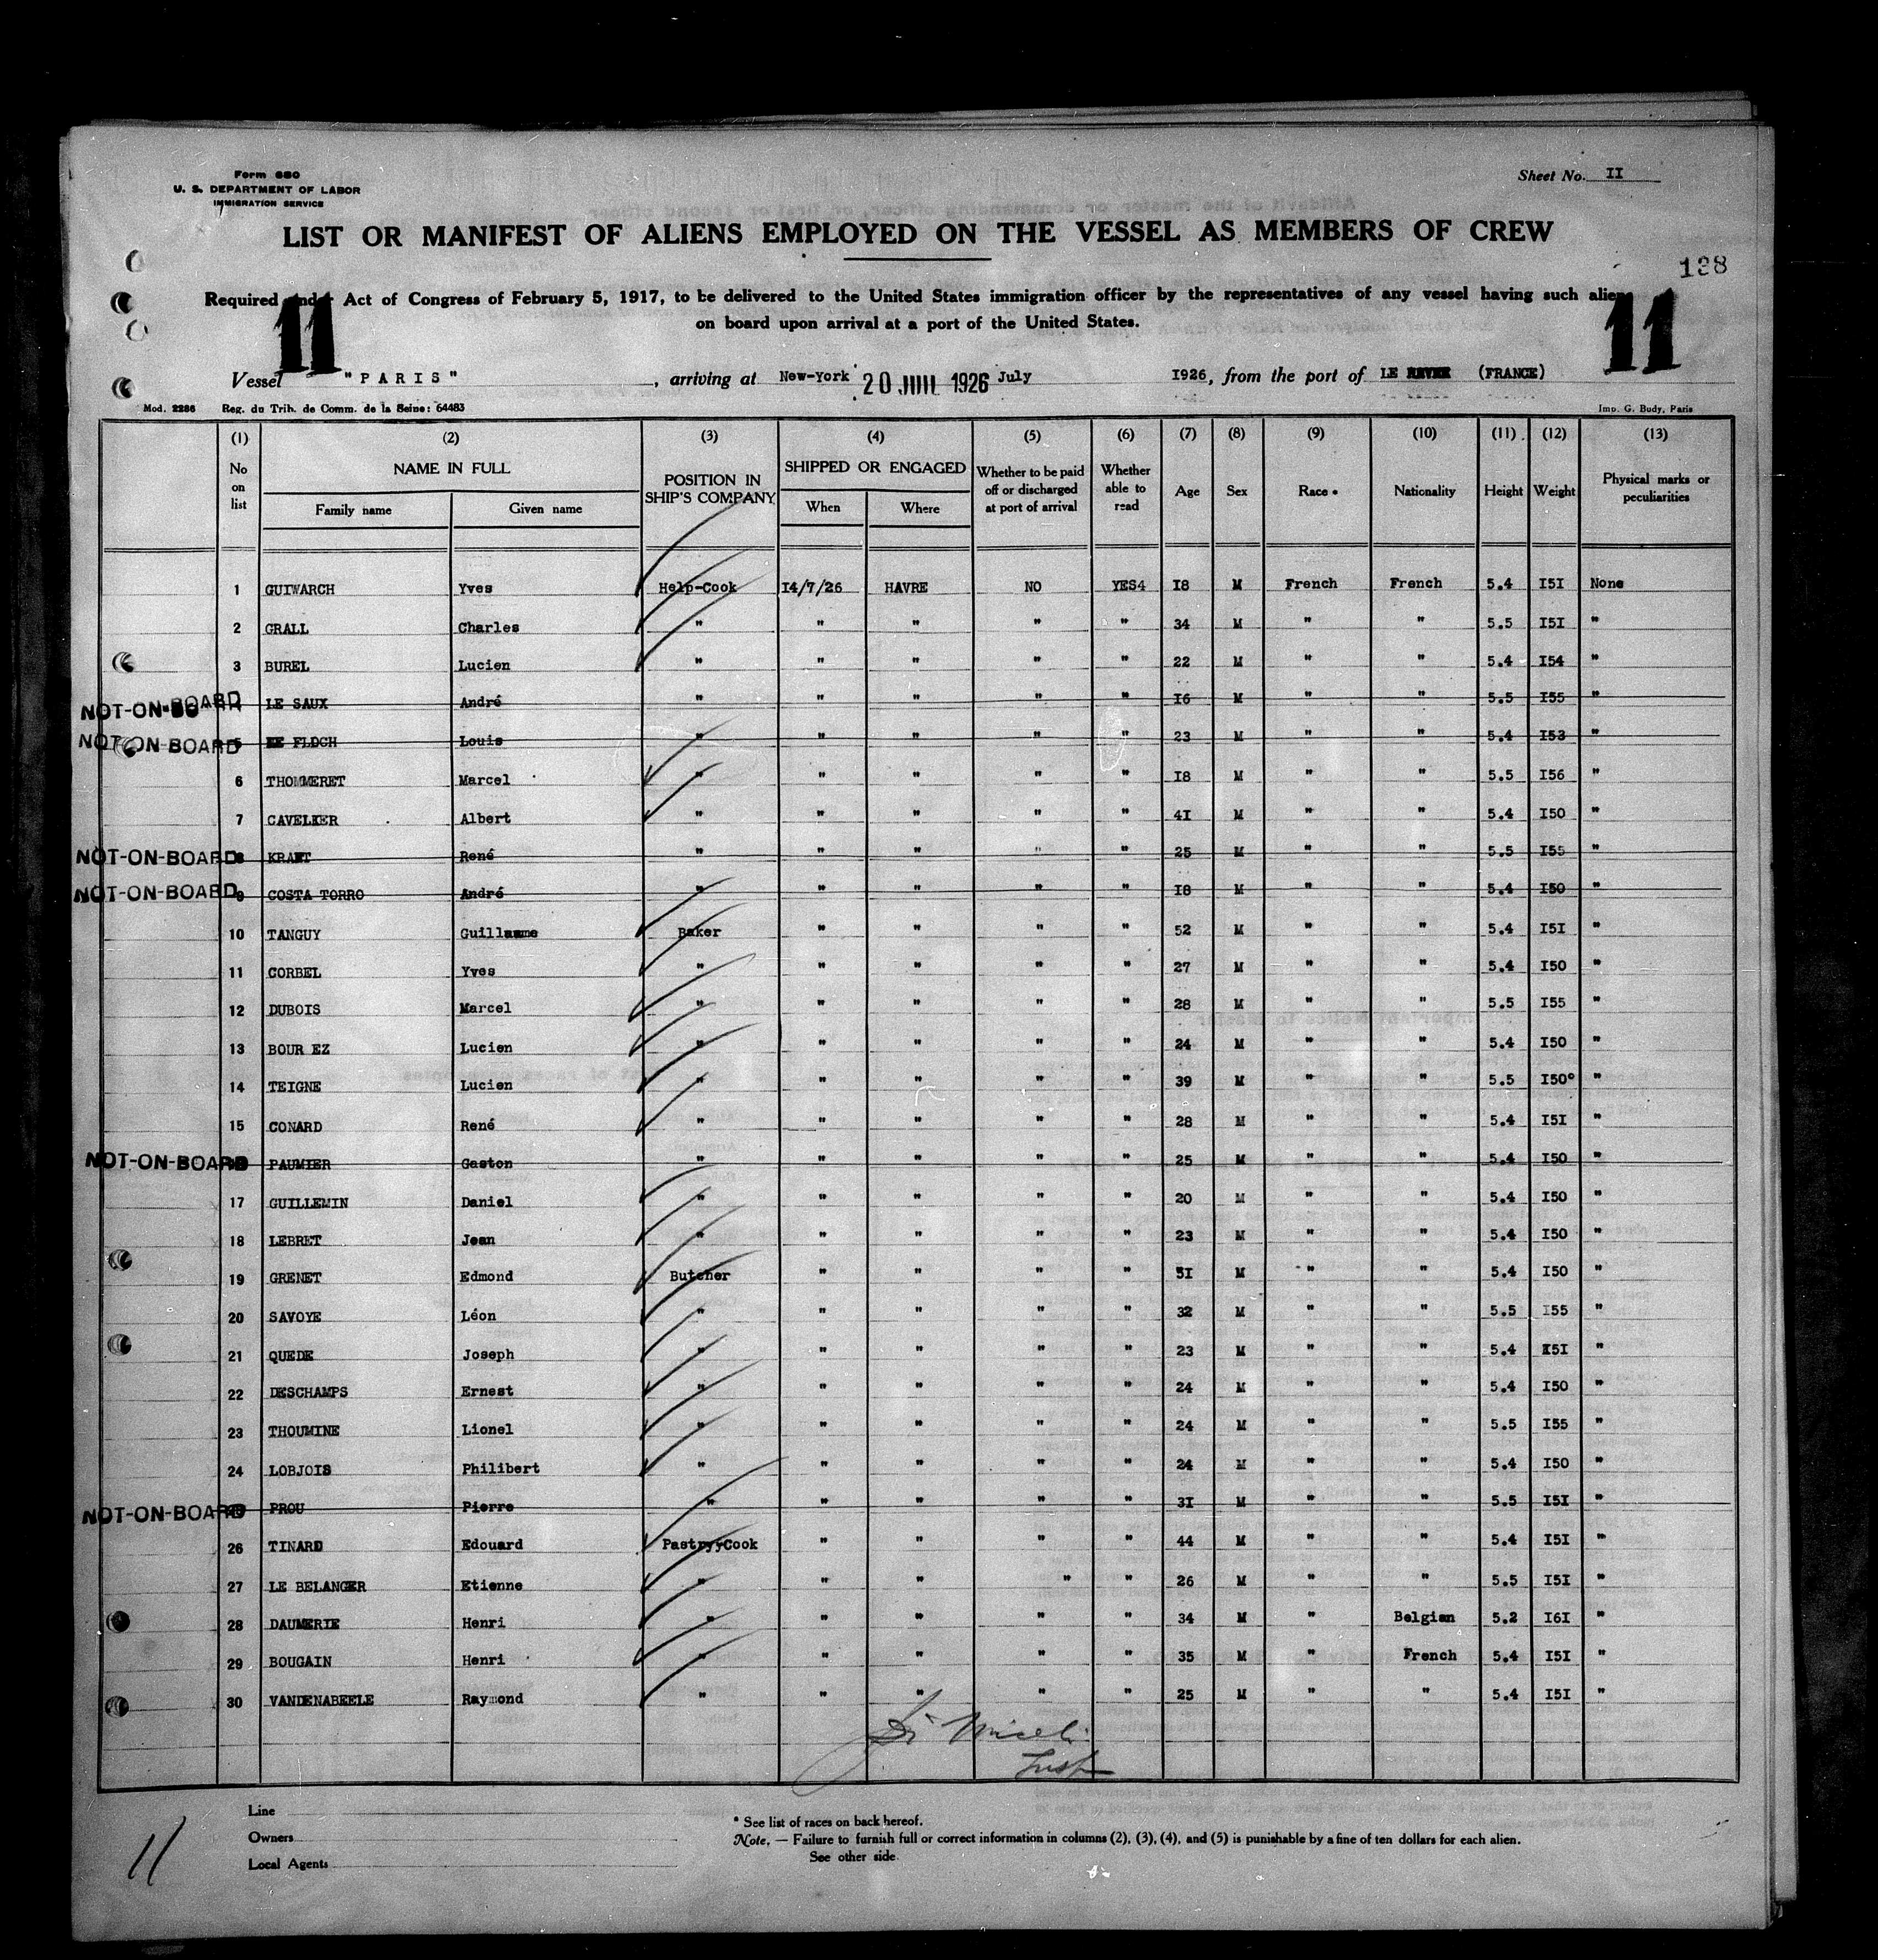 Form 680
U. S. DEPARTMENT OF LABOR
IMMIGRATION SERVICE
Sheet No. II
LIST OR MANIFEST OF ALIENS EMPLOYED ON THE VESSEL AS MEMBERS OF CREW
128
Required under Act of Congress of February 5, 1917, to be delivered to the United States immigration officer by the representatives of any vessel having such aliens
on board upon arrival at a port of the United States.
11 11
Vessel "PARIS", arriving at New-York 20 1926 July 1926, from the port of LE (FRANCE)
Mod. 2286 Reg. du Trib. de Comm. de la Seine: 64483 Imp. G. Budy, Paris
(1) (2) (3) (4) (5) (6) (7) (8) (9) (10) (11) (12) (13)
No on list NAME IN FULL Family name Given name POSITION IN SHIP'S COMPANY SHIPPED OR ENGAGED When Where Whether to be paid off or discharged at port of arrival Whether able to read Age Sex Race * Nationality Height Weight Physical marks or peculiarities
1 GUIWARCH Yves Help-Cook 14/7/26 HAVRE NO YES4 I8 M French French 5.4 I5I None
2 GRALL Charles " " " " " 34 M " " 5.5 I5I "
3 BUREL Lucien " " " " " 22 M " " 5.4 I54 "
NOT-ON-BOARD LE SAUX André " " " " " I6 M " " 5.5 I55 "
NOT-ON-BOARD 5 FLOCH Louis " " " " " 23 M " " 5.4 I53 "
6 THOMMERET Marcel " " " " " I8 M " " 5.5 I56 "
7 CAVELIER Albert " " " " " 4I M " " 5.4 I50 "
NOT-ON-BOARD 8 KRAFT René " " " " " 25 M " " 5.5 I55 "
NOT-ON-BOARD 9 COSTA TORRO André " " " " " I8 M " " 5.4 I50 "
10 TANGUY Guillaume Baker " " " " 52 M " " 5.4 I5I "
11 CORBEL Yves " " " " " 27 M " " 5.4 I50 "
12 DUBOIS Marcel " " " " " 28 M " " 5.5 I55 "
13 BOUR EZ Lucien " " " " " 24 M " " 5.4 I50 "
14 TEIGNE Lucien " " " " " 39 M " " 5.5 I50° "
15 CONARD René " " " " " 28 M " " 5.4 I5I "
NOT-ON-BOARD PAUMIER Gaston " " " " " 25 M " " 5.4 I50 "
17 GUILLEMIN Daniel " " " " " 20 M " " 5.4 I50 "
18 LEBRET Jean " " " " " 23 M " " 5.4 I50 "
19 GRENET Edmond Butcher " " " " 5I M " " 5.4 I50 "
20 SAVOYE Léon " " " " " 32 M " " 5.5 I55 "
21 QUEDE Joseph " " " " " 23 M " " 5.4 I5I "
22 DESCHAMPS Ernest " " " " " 24 M " " 5.4 I50 "
23 THOUMINE Lionel " " " " " 24 M " " 5.5 I55 "
24 LOBJOIS Philibert " " " " " 24 M " " 5.4 I50 "
NOT-ON-BOARD PROU Pierre " " " " " 3I M " " 5.5 I5I "
26 TINARD Edouard PastryyCook " " " " 44 M " " 5.4 I5I "
27 LE BELANGER Etienne " " " " " 26 M " " 5.5 I5I "
28 DAUMERIE Henri " " " " " 34 M " Belgian 5.2 I6I "
29 BOUGAIN Henri " " " " " 35 M " French 5.4 I5I "
30 VANDENABEELE Raymond " " " " " 25 M " " 5.4 I5I "
Line
Owners
Local Agents
* See list of races on back hereof.
Note. — Failure to furnish full or correct information in columns (2), (3), (4), and (5) is punishable by a fine of ten dollars for each alien.
See other side
11